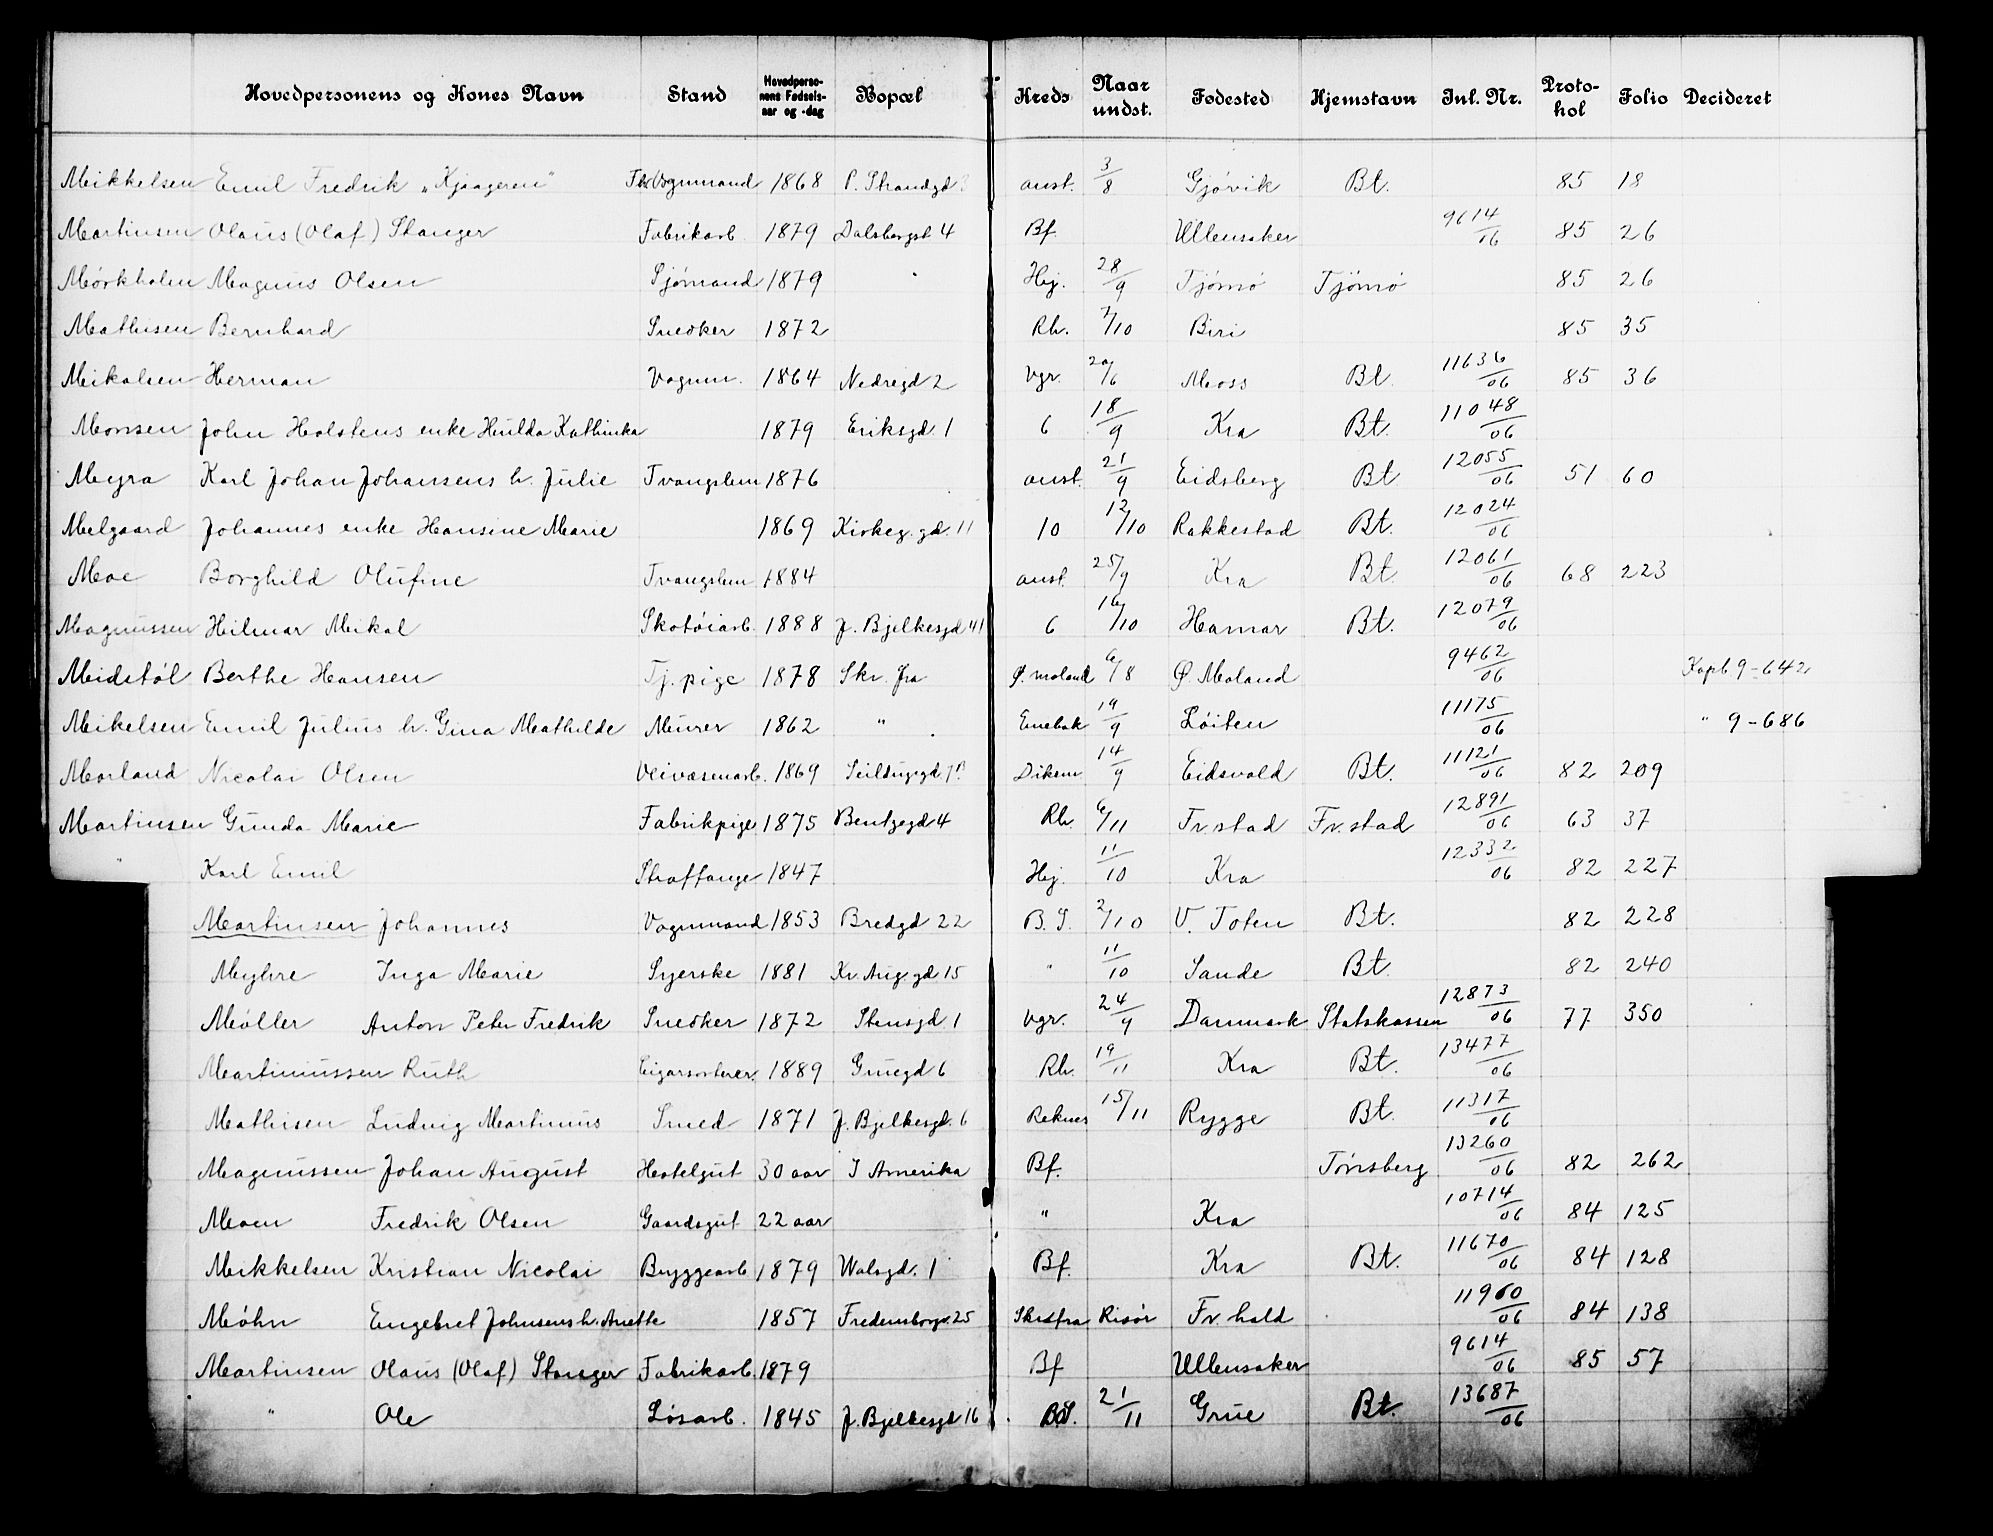 Hovedpersonens og Kones Navn Stand Hovedperso-nens Fødsels-aar og -dag Bopæl Kreds Naar undst. Fødested Hjemstavn Inl. Nr. Proto-kol Folio Decideret
Mikkelsen Emil Fredrik „Kjaageren" Vognmand 1868 P. Strandgd anst. 3/8 Gjøvik Bt. 85 18
Martinsen Olaus (Olaf) Stanger Fabrikarb. 1879 Dalsbergst 4 Bf. Ullensaker 9614/06 85 26
Mørkholm Magnus Olsen Sjømand 1879 Hej. 28/9 Tjømø Tjømø 85 26
Mathisen Bernhard Snedker 1872 Rh. 7/10 Biri 85 35
Mikalsen Herman Vognm. 1864 Nedregd 2 Vgr. 20/6 Moss Bt. 11636/06 85 36
Monsen John Holstens enke Hulda Kathinka 1879 Eriksgd. 1 6 18/9 Kra Bt. 11048/06
Meyra Karl Johan Johansens h. Julie Tvangslem 1876 anst. 21/9 Eidsberg Bt 12055/06 51 60
Melgaard Johannes enke Hansine Marie 1869 Kirkeg.gd. 11 10 12/10 Rakkestad Bt. 12024/06
Moe Borghild Olufine Tvangslem 1884 anst. 25/9 Kra Bt. 12061/06 68 223
Magnussen Hilmar Mikal Skotøiarb. 1888 J. Bjelkesgd 41 6 16/10 Hamar Bt. 12079/06
Meidstøl Berthe Hansen Tj. pige 1878 Skr. fra Ø. moland 6/8 Ø. Moland 9462/06 Kopb 9-642
Mikelsen Emil Julius h. Gina Mathilde Murer 1862 " Enebak 19/9 Løiten 11175/06 " 9-686
Morland Nicolai Olsen Veivæsenarb. 1869 Seildugsgd 7B Dikem. 14/9 Eidsvold Bt. 11121/06 82 209
Martinsen Gunda Marie Fabrikpige 1875 Bentzegd 4 Rh. 6/11 Fr.stad Fr.stad 12891/06 63 37
" Karl Emil Straffange 1847 Hej. 11/10 Kra 12332/06 82 227
Martinsen Johannes Vognmand 1853 Bredgd 22 B.S. 2/10 V. Toten Bt. 82 228
Myhre Inga Marie Syerske 1881 Kr. Aug. gd 15 " 11/10 Sande Bt. 82 240
Møller Anton Peter Fredrik Snedker 1872 Stensgd 1 Vgr. 24/9 Danmark Statskassen 12873/06 77 350
Martiniussen Ruth Cigarsorterer. 1889 Gruegd 6 Rh. 19/11 Kra Bt. 13477/06
Mathisen Ludvig Martinius Smed 1871 J. Bjelkesgd. 6 Reknes 15/11 Rygge Bt. 11317/06
Magnussen Johan August Hotelgut 30 aar I Amerika Bf. Tønsberg 13260/06 82 262
Moen Fredrik Olsen Gaardsgut 22 aar " Kra 10714/06 84 125
Mikkelsen Kristian Nicolai Bryggearb 1879 Walsgd. 1 Bf. Kra Bt. 11670/06 84 128
Møhn Engebret Johnsens h. Anette 1857 Fredensborgv. 25 Skrstfra Risør Fr.hald 11960/06 84 138
Martinsen Olaus (Olaf) Stanger Fabrikarb. 1879 Bf Ullensaker 9614/06 85 57
" Ole Løsarb. 1845 J. Bjelkesgd 16 21/11 Grue Bt. 13687/06